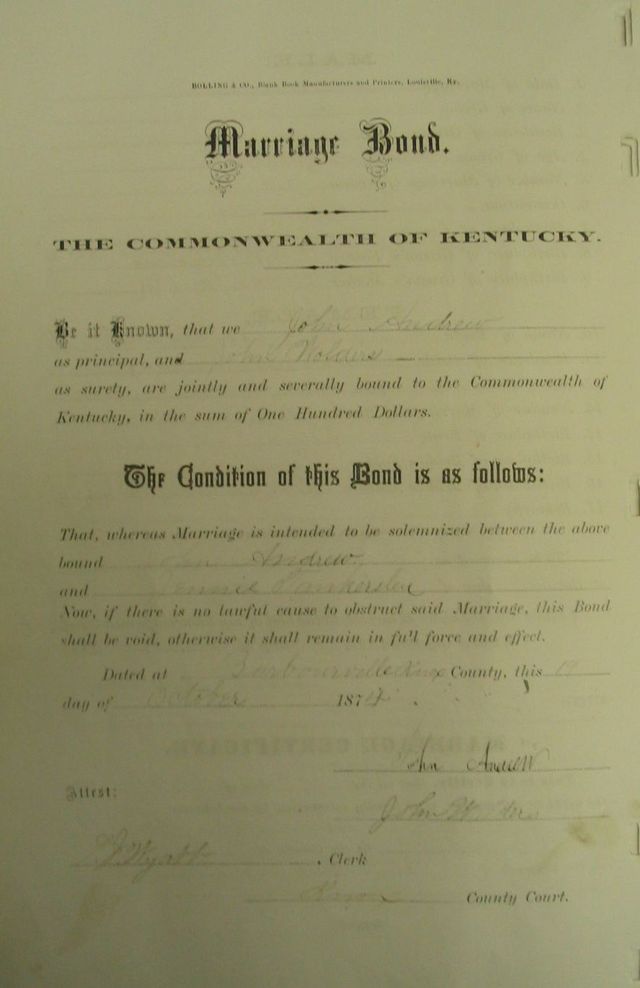 BOLLING & CO., Blank Book Manufacturers and Printers, Louisville, Ky.
Marriage Bond.
THE COMMONWEALTH OF KENTUCKY.
Be it Known, that we John Andrew
as principal, and John
as surety, are jointly and severally bound to the Commonwealth of
Kentucky, in the sum of One Hundred Dollars.
The Condition of this Bond is as follows:
That, whereas Marriage is intended to be solemnized between the above
bound Andrew
and
Now, if there is no lawful cause to obstruct said Marriage, this Bond
shall be void, otherwise it shall remain in full force and effect.
Dated at Barbourville Knox County, this 19
day of October 1874
John Andrew
Attest:
John
Wyatt, Clerk
Knox County Court.